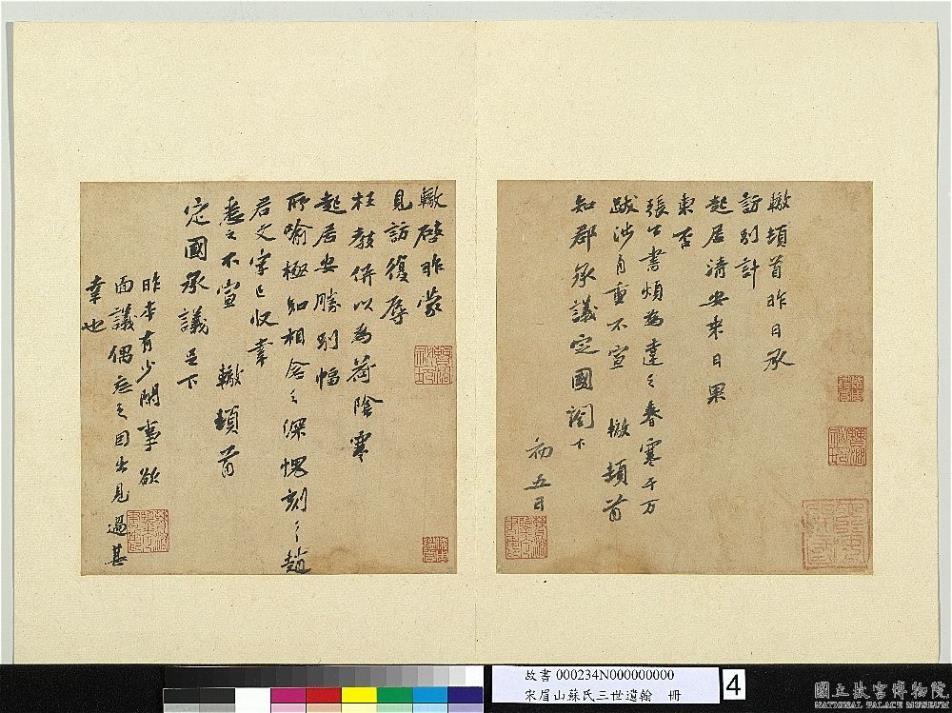 轍頓首昨日承
訪別計
起居清安來日果
東否
張公書煩為達之春寒千万
跋涉自重不宣　轍頓首
知郡承議定國閤下
初五日
轍啓昨蒙
見訪復辱
枉教併以為荷陰寒
起居安勝別幅
所喻極知相念之深愧刻〻趙
君文字已收幸
悉之不宣　轍頓首
定國承議足下
昨本有少閑事欲
面議偶忘之因出見過甚
幸也
故書 000234N000000000
宋眉山蘇氏三世遺翰　冊
4
國立故宮博物院
NATIONAL PALACE MUSEUM